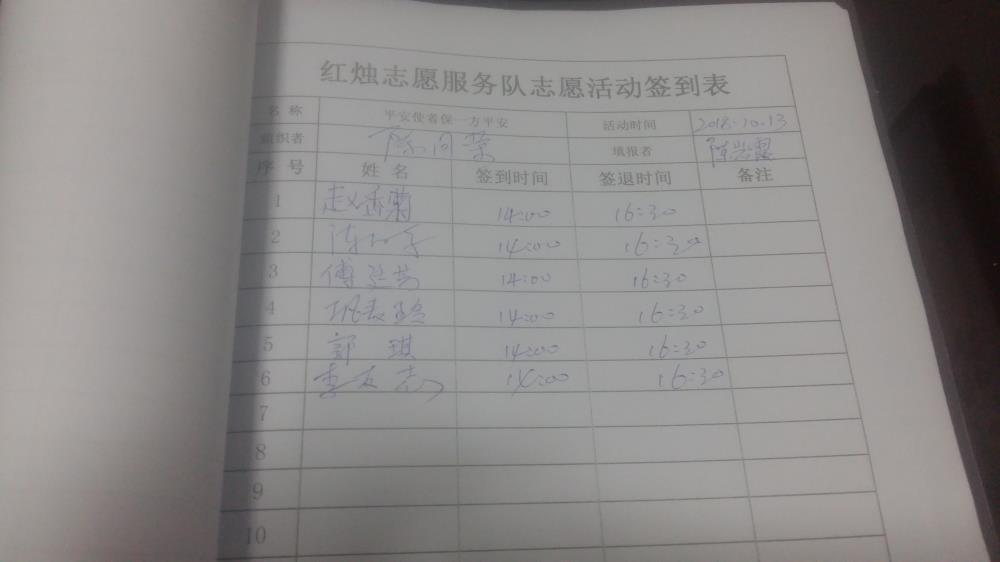 红烛志愿服务队志愿活动签到表
名称 平安使者保一方平安 活动时间 2018.10.13
组织者 填报者
序号 姓名 签到时间 签退时间 备注
1 赵香菊 14:00 16:30
2 14:00 16:30
3 傅 14:00 16:30
4 14:00 16:30
5 郭琪 14:00 16:30
6 李友志 14:00 16:30
7
8
9
10